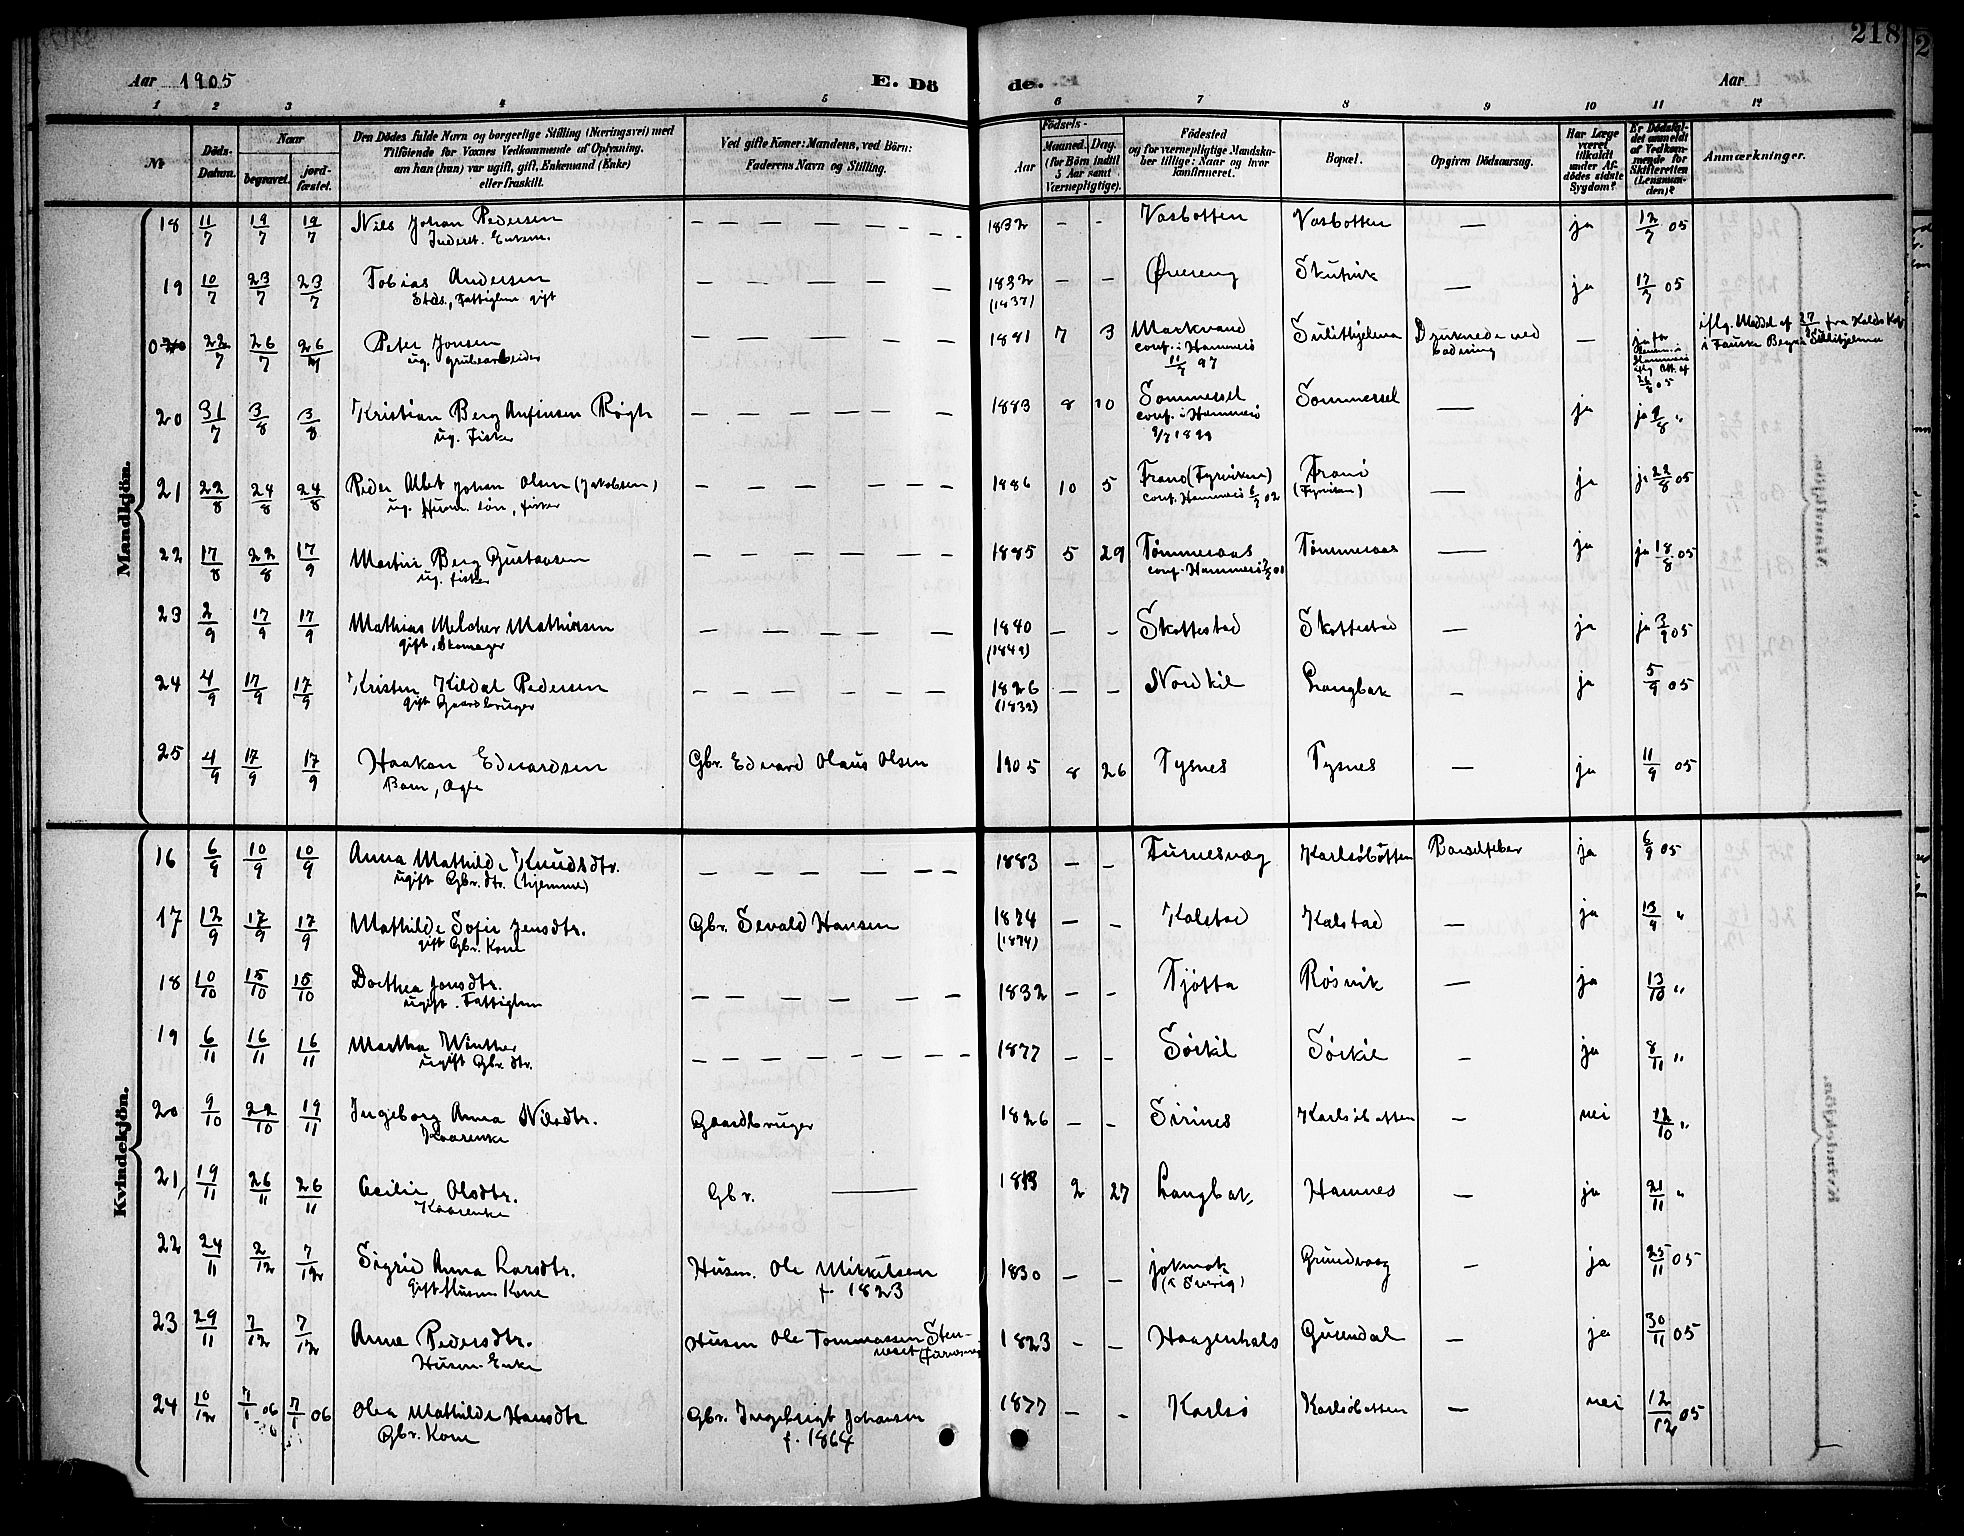 218
Aar 1905 E. Dö
de. Aar
1 2 3 4 5 6 7 8 9 10 11 12
Nr
Döds-
Datum.
Naar
begravet.
jord-
fæstet.
Den Dödes fulde Navn og borgerlige Stilling (Næringsvei) med
Tilföiende for Voxnes Vedkommende af Oplysning,
om han (hun) var ugift, gift, Enkemand (Enke)
eller fraskilt.
Ved gifte Koner: Mandens, ved Börn:
Faderens Navn og Stilling.
Födsels-
Aar
Maaned. Dag.
(for Börn indtil
5 Aar samt
Værnepligtige).
Födested
og for værnepligtige Mandska-
ber tillige: Naar og hvor
konfirmeret.
Bopæl.
Opgiven Dödsaarsag.
Har Læge
været
tilkaldt
under Af-
dödes sidste
Sygdom?
Er Dödsfal-
det anmeldt
af Vedkom-
mende for
Skifteretten
(Lensman-
den)?
Anmærkninger.
Mandkjön.
18 11/7 19/7 19/7 Nils Johan Pedersen — — — — — — 1832 - - Vasbotten Vasbotten — ja 12/7 05
Inderst. Enkem.
19 10/7 23/7 23/7 Tobias Andersen — — — — — 1832 - - Øvereng Skutvik — ja 17/7 05
Stds., Fattiglem gift (1837)
22/7 26/7 26/7 Peter Jonsen — — — — — 1881 7 3 Markvand Sulithjelma Druknede ved —
ug. grubearbeider conf. i Hammerö badning
11/7 97
iflg. Meddel af 27/
i Fauske Sulithjelma
20 31/7 3/8 3/8 Kristian Berg Anfinsen Røgh — — — — — 1883 8 10 Sommersel Sommersel — ja ja 2/8 "
ug. Fisker conf. i Hammerö
9/7 1899
21 22/8 24/8 24/8 Peder Albet Johan Olsen (Jakobsen) — — — — — 1886 10 5 Tranö (Fyrviken) Tranö — ja ja 22/8 05
ug. Husm. søn, fisker conf. Hammerö 6/7 02 (Fyrviken)
22 17/8 22/8 17/9 Martin Berg Gustavsen — — — — — 1885 5 29 Tømmeraas Tømmeraas — ja ja 18/8 05
ug. fisker conf. Hammerö
23 2/9 17/9 17/9 Mathias Melcher Mathiasen — — — — — 1840 - - Skottestad Skottestad — ja ja 3/9 05
gift, Skomager (1849)
24 4/9 17/9 17/9 Kristen Kildal Pedersen — — — — — 1826 - - Nordkil Langbak — ja 5/9 05
gift Gaardbruger (1832)
25 4/9 17/9 17/9 Haakon Edvardsen Gbr. Edvard Olaus Olsen 1905 8 26 Tysnes Tysnes — ja 11/9 05
Barn, Ægte
Kvindekjön.
16 6/9 10/9 10/9 Anna Mathilde Knudsdtr. — — — — — 1883 - - Furnesvaag Karlsöbotten Barselfeber ja 6/9 05
ugift Gbr. dtr. (hjemme)
17 12/9 17/9 17/9 Mathilde Sofie Jensdtr. Gbr. Sevald Hansen 1874 - - Kalstad Kalstad — ja 13/9 "
gift Gbr. Kone (1874)
18 10/10 15/10 15/10 Dorthea Jonsdtr. — — — — — — 1832 - - Tjøtta Røsvik — ja 13/10 "
ugift. Fattiglem
19 6/11 16/11 16/11 Martha Winther — — — — — — — 1877 - - Sørkil Sørkil — ja 8/11 "
ugift Gbr. dtr.
20 9/10 22/10 19/11 Ingeborg Anna Nilsdtr. Gaardbruger 1826 - - Sirines Karlsöbotten — nei 12/10 "
Kaarenke
21 19/11 26/11 26/11 Cecilie Olsdtr. Gbr. — 2 27 Langbak Hamnes — ja 21/11 "
Kaarenke
22 24/11 2/12 7/12 Sigrid Anna Larsdtr. Husm. Ole Mikkelsen 1830 - - Jokmok Grundvaag — ja 25/11 05
Gift Husm. Kone f. 1823 (i Sverig)
23 29/11 7/12 7/12 Anne Pedersdtr. Husm Ole Tommassen Sten- 1823 - - Haagenhals — ja 30/11 05
Husm. Enke
24 10/12 7/1 06 7/1 06 Olea Mathilde Hansdtr Gbr. Ingebrigt Johansen 1877 - - Karlsö Karlsöbotten — nei 12/12 05
Gbr. Kone f. 1864